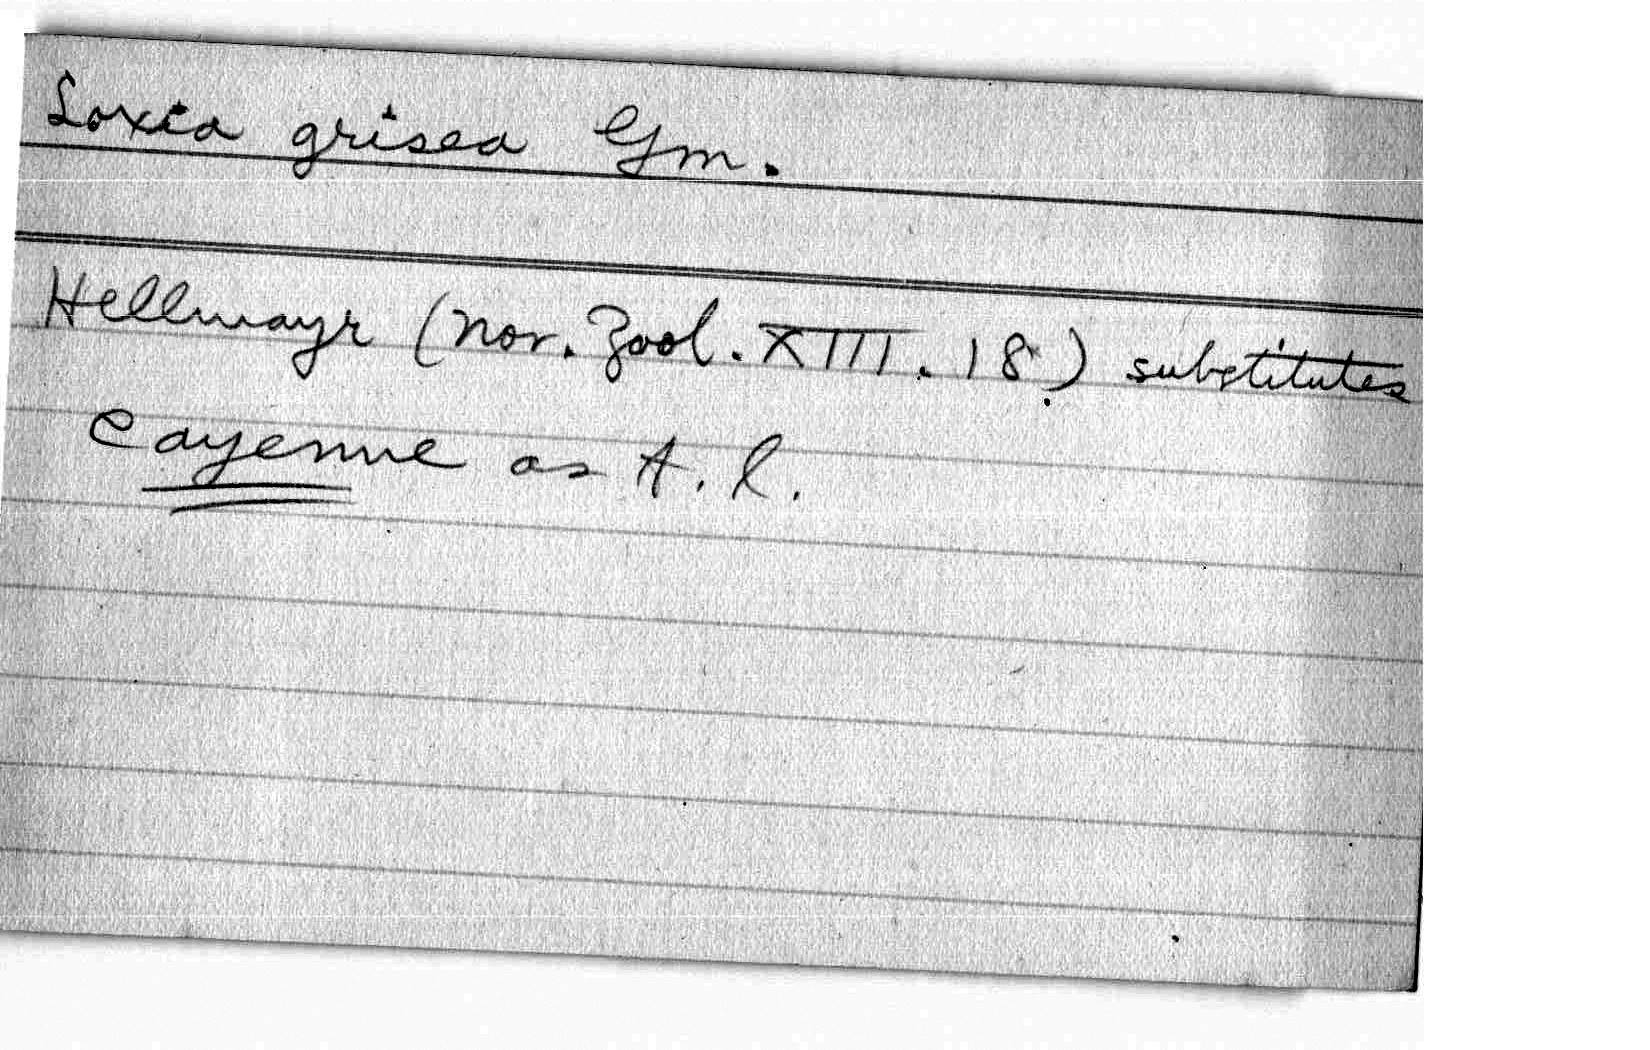 Loxia grisea Gm.
Hellmayr (Nov. Zool. XIII. 18) substitutes
Cayenne as T. L.